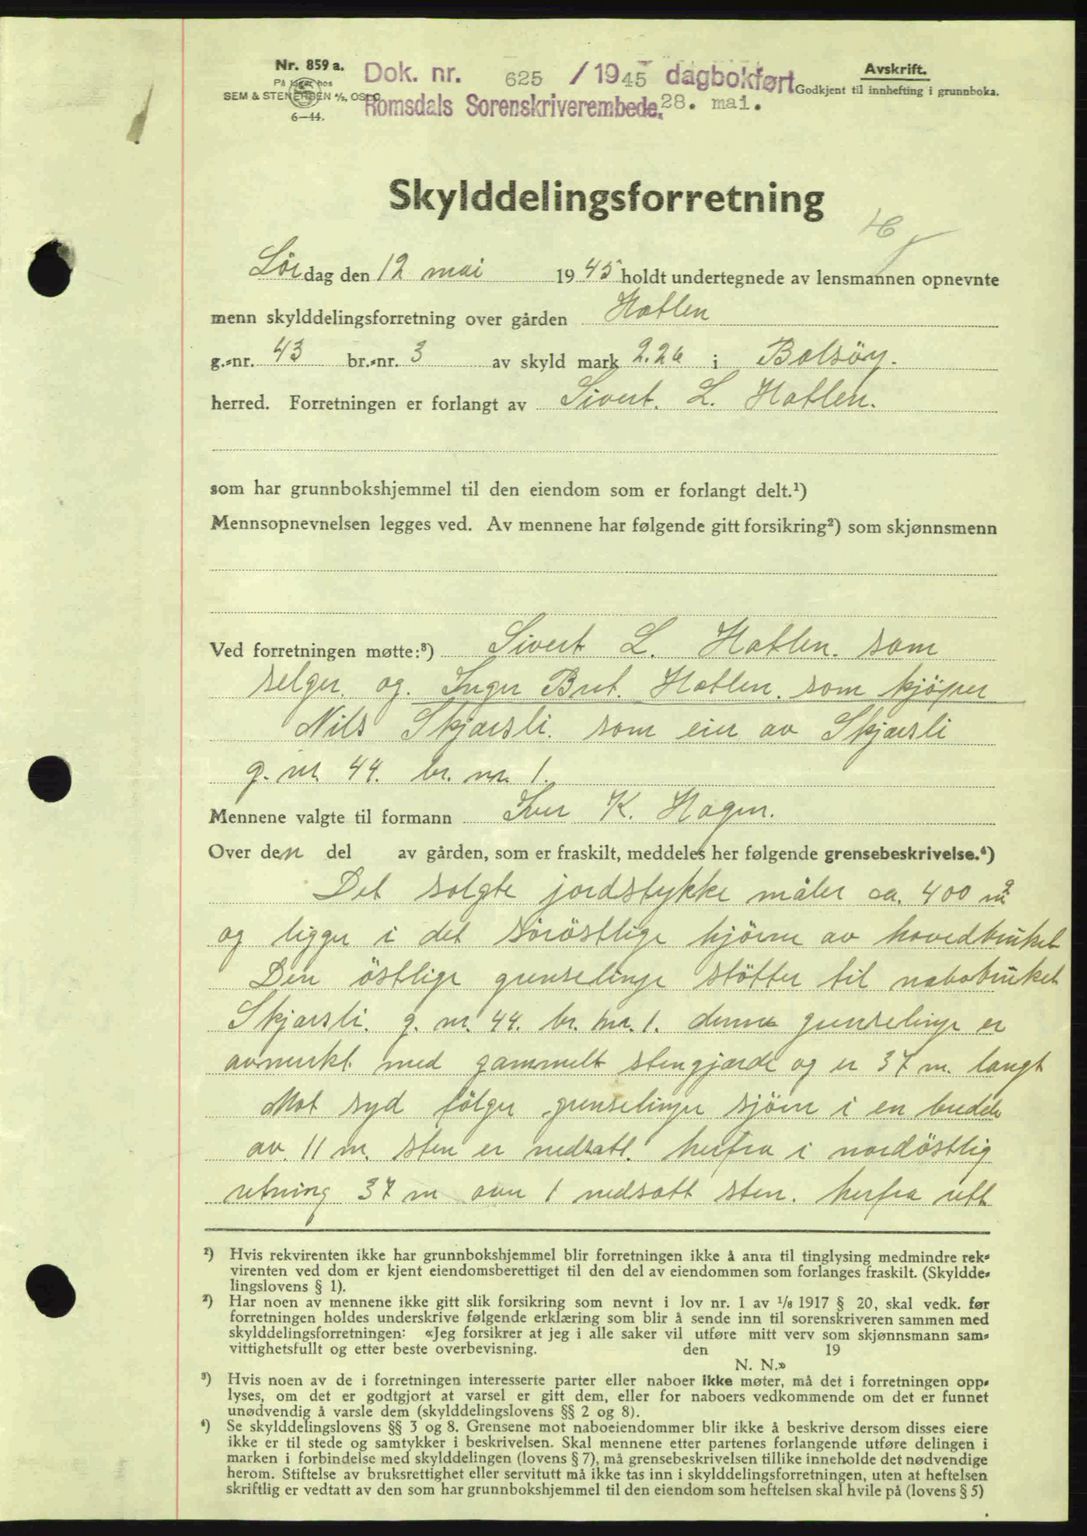 Nr. 859 a.
På lager hos
SEM & STENERSEN A/S, OSLO
6—44.
Dok. nr. 625 / 1945 dagbokført
Romsdals Sorenskriverembede. 28. mai.
Avskrift.
Godkjent til innhefting i grunnboka.
Skylddelingsforretning
Lördag den 12 mai 1945 holdt undertegnede av lensmannen opnevnte
menn skylddelingsforretning over gården Hatlen
g.-nr. 43 br.-nr. 3 av skyld mark 2.26 i Bolsöy.
herred. Forretningen er forlangt av Sivert. L. Hatlen.
som har grunnbokshjemmel til den eiendom som er forlangt delt.¹)
Mennsopnevnelsen legges ved. Av mennene har følgende gitt forsikring²) som skjønnsmenn
Ved forretningen møtte:³) Sivert L. Hatlen. som
selger. og. Inger Brit. Hatlen. som kjöper
Nils Skjærsli. som eier av Skjærsli
g. nr. 44. br. nr. 1.
Mennene valgte til formann Iver K. Hagen.
Over den del av gården, som er fraskilt, meddeles her følgende grensebeskrivelse.⁴)
Det solgte jordstykke måler ca. 400 m²
og ligger i det söröstlige hjörne av hovedbruket
Den östlige grenselinje stötter til nabobruket
Skjærsli. g. nr. 44. br. nr. 1. denne grenselinje er
avmerkt med gammelt stengjærde og er 37 m. langt
Mot syd fölger grenselinjen sjöen i en bredde
av 11 m. sten er nedsatt. herfra i nordöstlig
retning 37 m over 1 nedsatt sten. herfra rett
¹) Hvis rekvirenten ikke har grunnbokshjemmel blir forretningen ikke å anta til tinglysing medmindre rek-
virenten ved dom er kjent eiendomsberettiget til den del av eiendommen som forlanges fraskilt. (Skyldde-
lingslovens § 1).
²) Har noen av mennene ikke gitt slik forsikring som nevnt i lov nr. 1 av 1/6 1917 § 20, skal vedk. før
forretningen holdes underskrive følgende erklæring som blir å sende inn til sorenskriveren sammen med
skylddelingsforretningen: «Jeg forsikrer at jeg i alle saker vil utføre mitt verv som skjønnsmann sam-
vittighetsfullt og etter beste overbevisning. den 19
N. N.»
³) Hvis noen av de i forretningen interesserte parter eller naboer ikke møter, må det i forretningen opp-
lyses, om det er godtgjort at varsel er gitt dem, eller for naboers vedkommende om det er funnet
unødvendig å varsle dem (skylddelingslovens §§ 2 og 8).
⁴) Se skylddelingslovens §§ 3 og 8. Grensene mot naboeiendommer blir ikke å beskrive dersom disses eiere
ikke er til stede og samtykker i beskrivelsen. Skal mennene etter partenes forlangende utføre delingen i
marken i forbindelse med skylddelingen (lovens § 7), må grensebeskrivelsen tillike inneholde det nødvendige
herom. Stiftelse av bruksrettighet eller servitutt må ikke tas inn i skylddelingsforretningen, uten at heftelsen
skriftlig er vedtatt av den som har grunnbokshjemmel til den eiendom som heftelsen skal hvile på (lovens § 5)